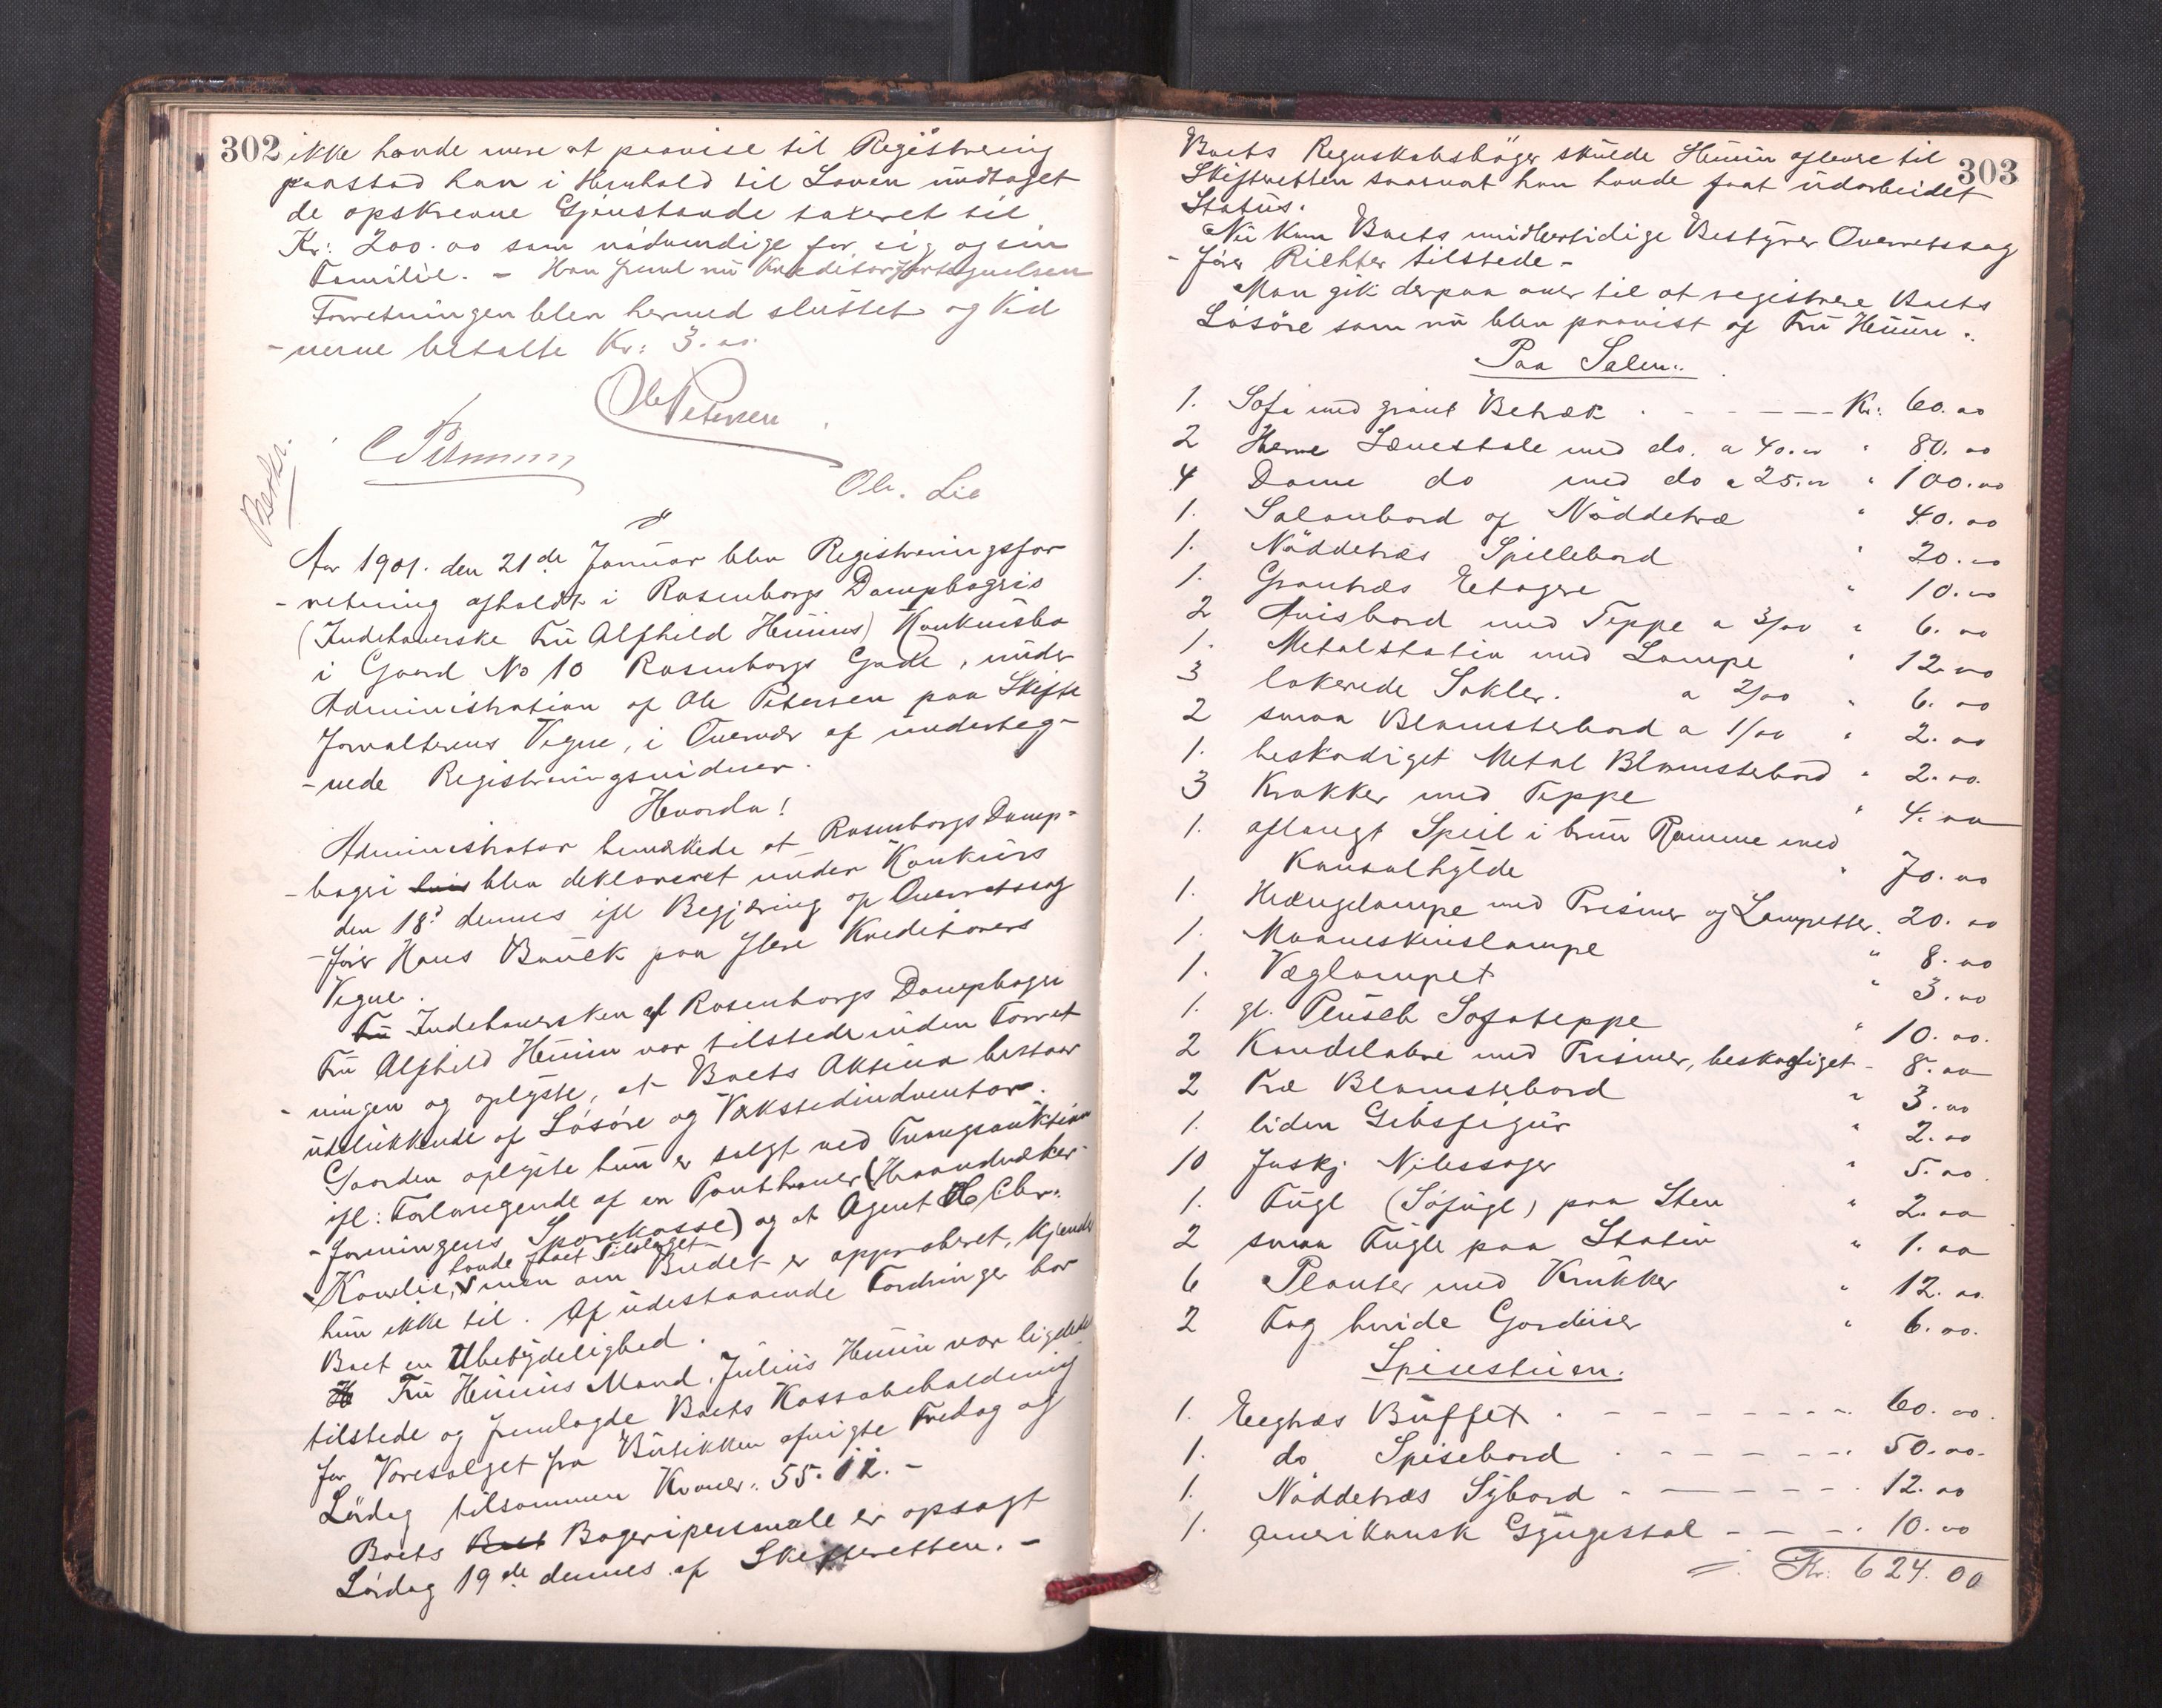 302 ikke havde mere at paavise til Registrering
paastod han i Henhold til Loven undtaget
de opskrevne Gjenstande takeret til
Kr: 200.00 som nødvendige for sig og sin
Familie. – Han freml nu Kreditorfortegnelsen
Forretningen blev hermed sluttet og Vid
-nerne betalte Kr: 3.00.
Ole Petersen
Ol. Lie
Aar 1901. den 21de Januar blev Registreringsfor
-retning afholdt i Rosenborgs Dampbageris
(Indehaverske Fru Alfhild Heuins) Konkursbo
i Gaard No 10 Rosenborgs Gade, under
Administration af Ole Petersen paa Skifte
forvalterens Vegne, i Overvær af underteg-
-nede Registreringsvidner.
Hvorda!
Administrator bemærkede at Rosenborgs Damp-
-bageri blev deklareret under Konkurs
den 18d dennes ifl Begjæring af Overretssag
-fører Hans Bauck paa flere Kreditorers
Vegne.
Fru Indehaversken af Rosenborgs Dampbageri
Fru Alfhild Heuin var tilstede under Forret
-ningen og oplyste, at Boets Aktiva bestaar
udelukkende af Løsøre og Værkstedindventar.
Gaarden oplyste hun er solgt ved Tvangsauktion
ifl: Forlangende af en Panthaver (Haandværker-
-foreningens Sparekasse) og at Agent H Chr.
havde faaet Tilslaget
men om Budet er approberet, kjender
hun ikke til. Af udestaaende Fordringer har
Boet en Ubetydelighed.
Fru Heuins Mand, Julius Heuin var ligeledes
tilstede og fremlagde Boets Kassabeholdning
for Varesalget fra Butikken afvigte Fredag og
Lørdag tilsammen Kroner: 55.12.–
Boets Boet Bageripersonale er opsagt
Lørdag 19de dennes af Skifteretten. –
303
Boets Regnskabsbøger skulde Heuin aflevere til
Skifteretten saasnart han havde faat udarbeidet
Status.
Nu kom Boets midlertidige Bestyrer Overretssag
-fører Richter tilstede –
Man gik derpaa over til at registrere Boets
Løsøre som nu blev paavist af Fru Heuin:
Paa Salen:
1. Sofa med grønt Betræk . - - - - Kr: 60.00
2 Herre Lænestole med do. a 40.00 " 80.00
4 Dame do med do a 25.00 " 100.00
1. Salonbord af Nøddetræ " 40.00
1. Nøddetræs Spillebord " 20.00
1. Grantræs Etagere " 10.00
2 Avisbord med Teppe a 3/00 " 6.00
1. Metalstativ med Lampe " 12.00
3 lakerede Sokler. a 2/00 " 6.00
2 smaa Blomsterbord a 1/00 " 2.00
1. beskadiget Metal Blomsterbord " 2.00
3 Krakker med Teppe " 4.00
1. aflangt Speil i brun Ramme med
Konsolhylde " 70.00
1. Hængelampe med Prismer og Lampetter. 20.00
1. Maaneskinslampe " 8.00
1. Væglampet " 3.00
1. gl. Plüsch Sofateppe " 10.00.
2 Kandelabre med Prismer, beskadiget - 8.00
2 Træ Blomsterbord " 3.00
1. liden Gibsfigur " 2.00
10 Fuskj. " 5.00
1. Fugl (Søfugl) paa Sten " 2.00
2 smaa Fugle paa Stativ " 1.00
6 Planter med Krukker " 12.00
2 Fag hvide Gardiner " 6.00.
Spisestuen:
1. Eegtræs Buffet . - - - - - 60.00.
1. do Spisebord . - - - - - 50.00.
1. Nøddetræs Sybord - - - - - 12.00
1. amerikansk Gyngestol - - - . 10.00
Kr: 624.00